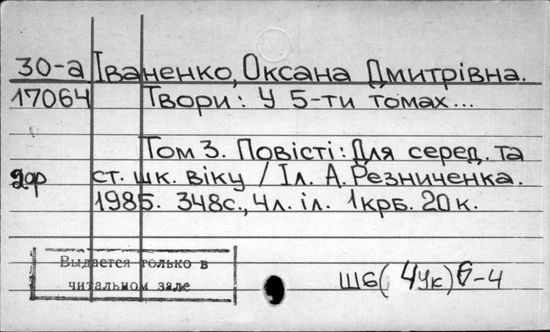 30-а Іваненко, Оксана Дмитрівна.
17064 Твори: У 5-ти томах...
Том 3. Повісті: Для серед. та
дар ст. шк. віку / Іл. А. Резниченка.
1985. 348с., 4л. іл. 1крб. 20к.
Выдается только в
читальном зале
Ш6(4Ук)6-4